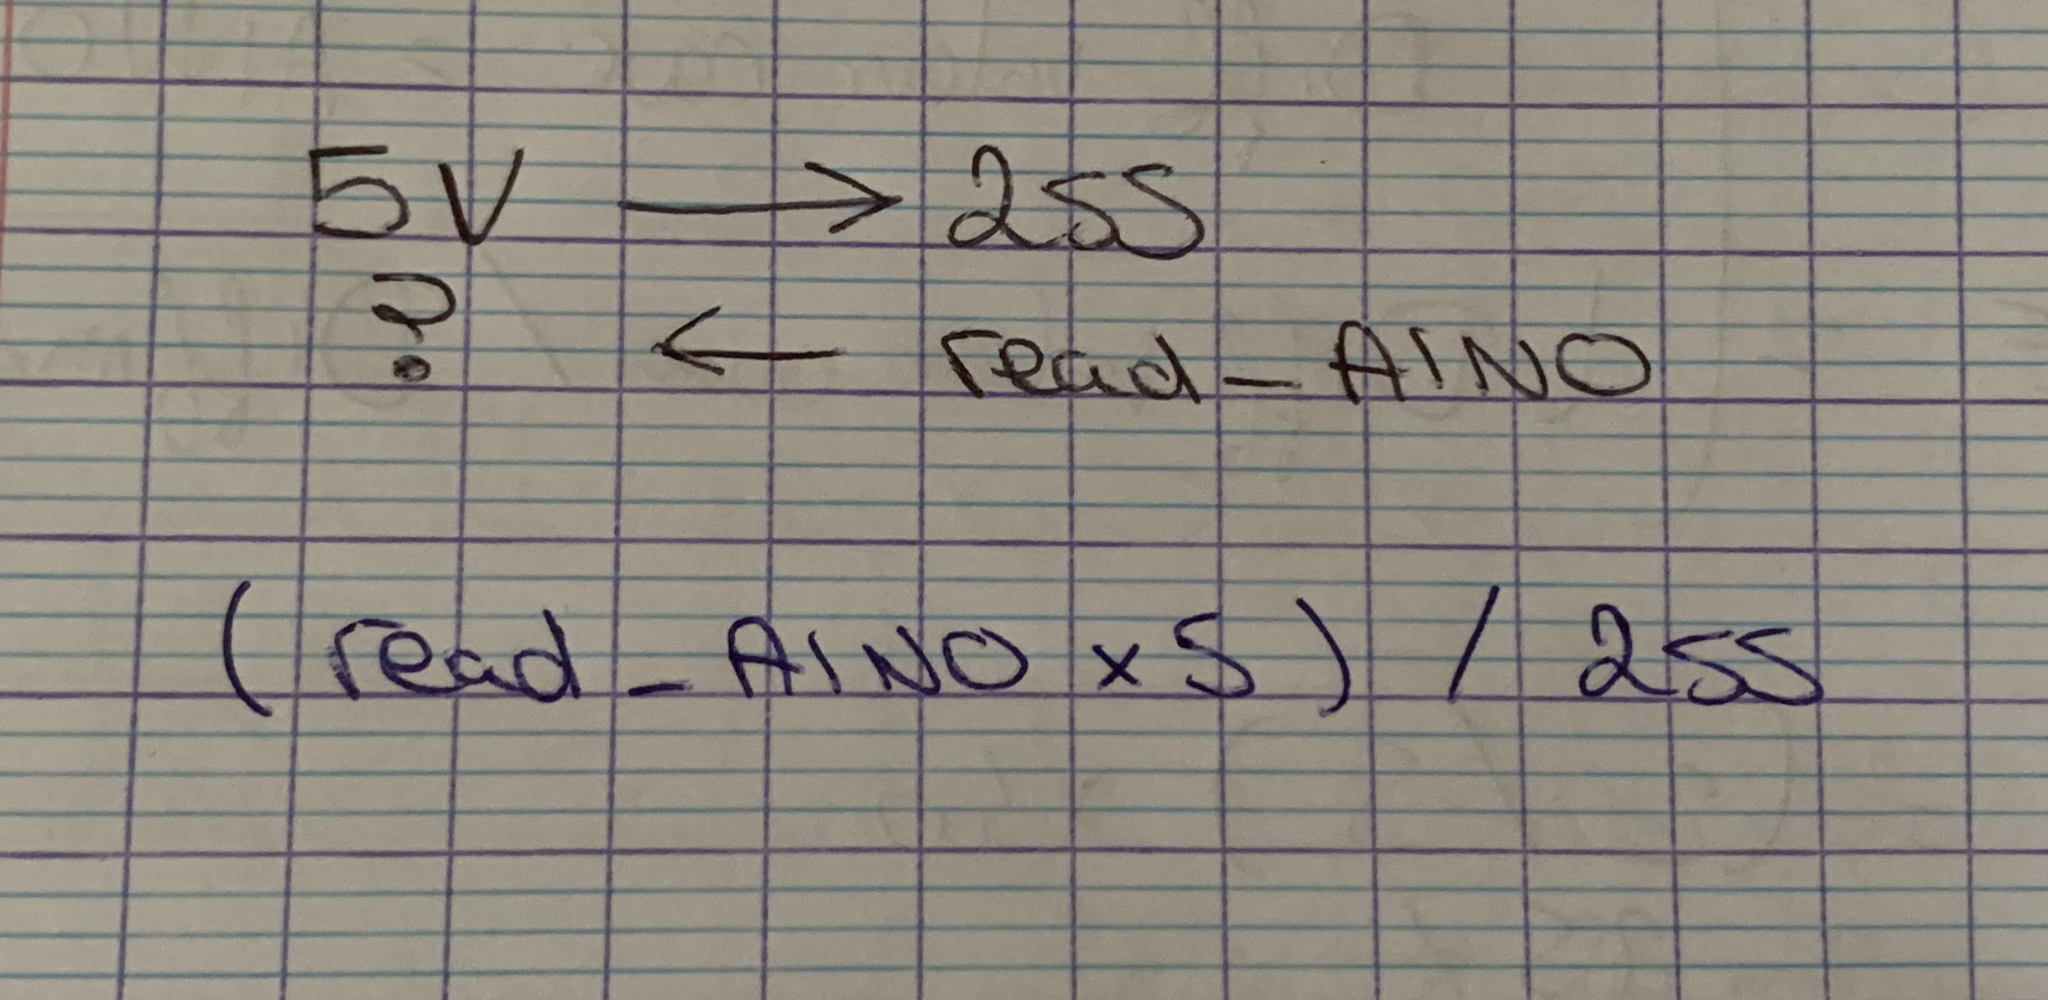 5V → 255
? ← read_AIN0
(read_AIN0 x 5) / 255